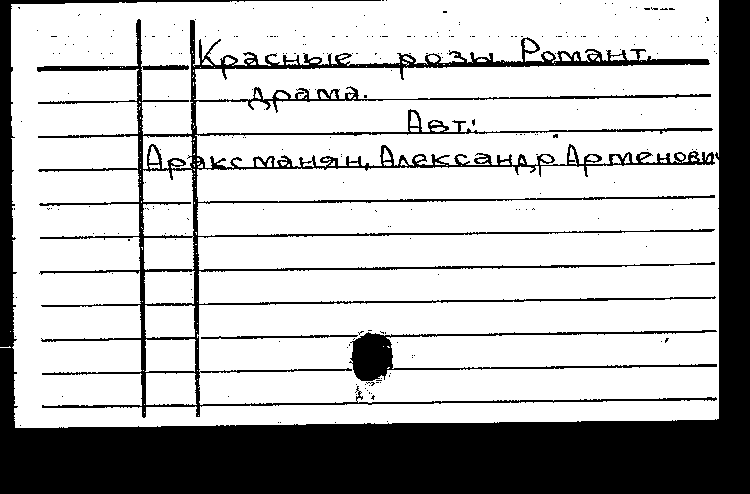 Красные розы. Романт.
драма.
Авт.:
Араксманян, Александр Артенович